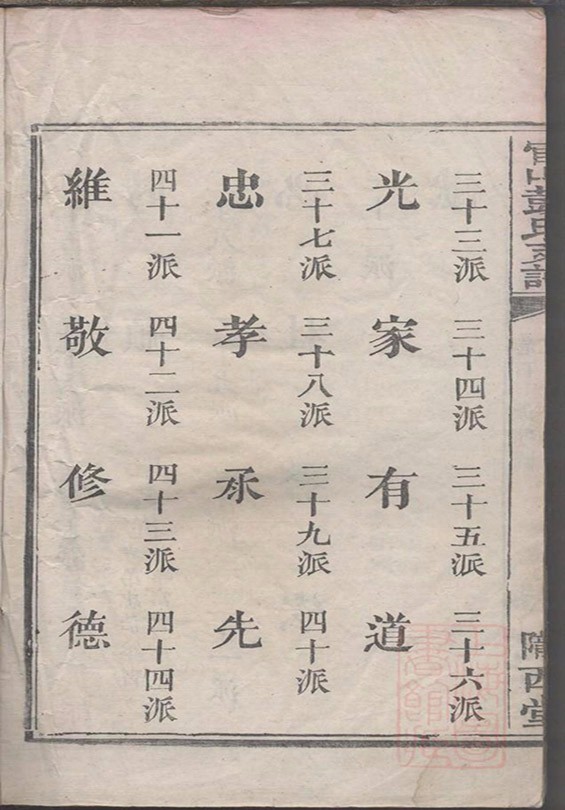 官山彭氏支譜
隴西堂
三十三派 三十四派 三十五派 三十六派
光 家 有 道
三十七派 三十八派 三十九派 四十派
忠 孝 承 先
四十一派 四十二派 四十三派 四十四派
維 敬 修 德